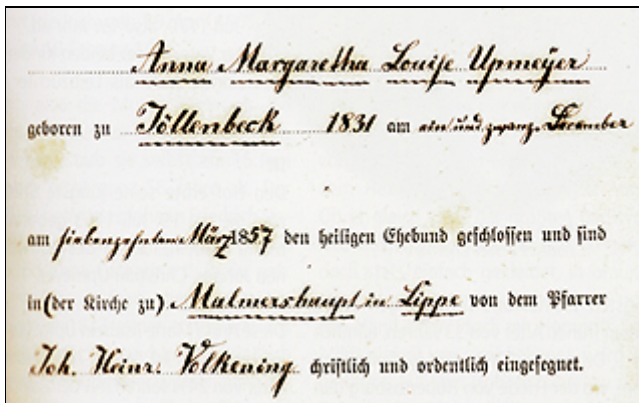 Anna Margaretha Louise Upmeÿer
geboren zu Jöllenbeck 1831 am ein und zwanz. December
am siebenzehnten März 1857 den heiligen Ehebund geschlossen und sind
in (der Kirche zu) Malmershaupt in Lippe von dem Pfarrer
Joh. Heinr. Volkening christlich und ordentlich eingesegnet.